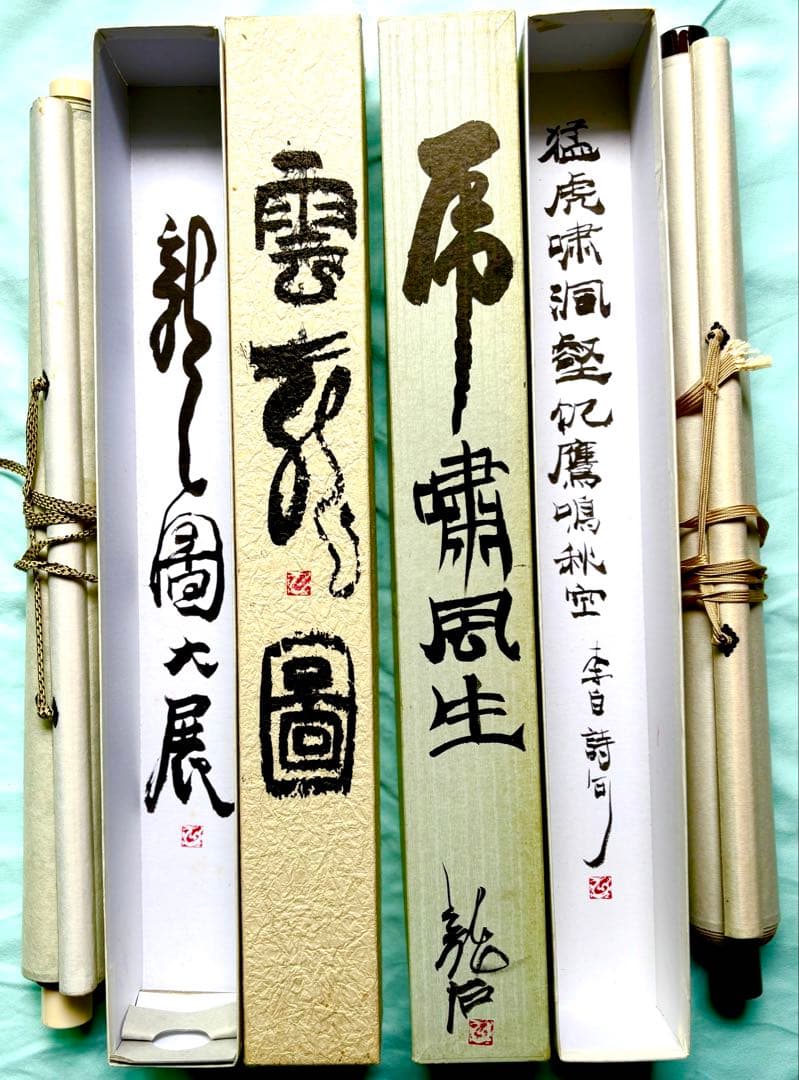 猛虎嘯洞壑飢鷹鳴秋空
李白詩句
虎嘯風生
雲龍圖
龍圖大展